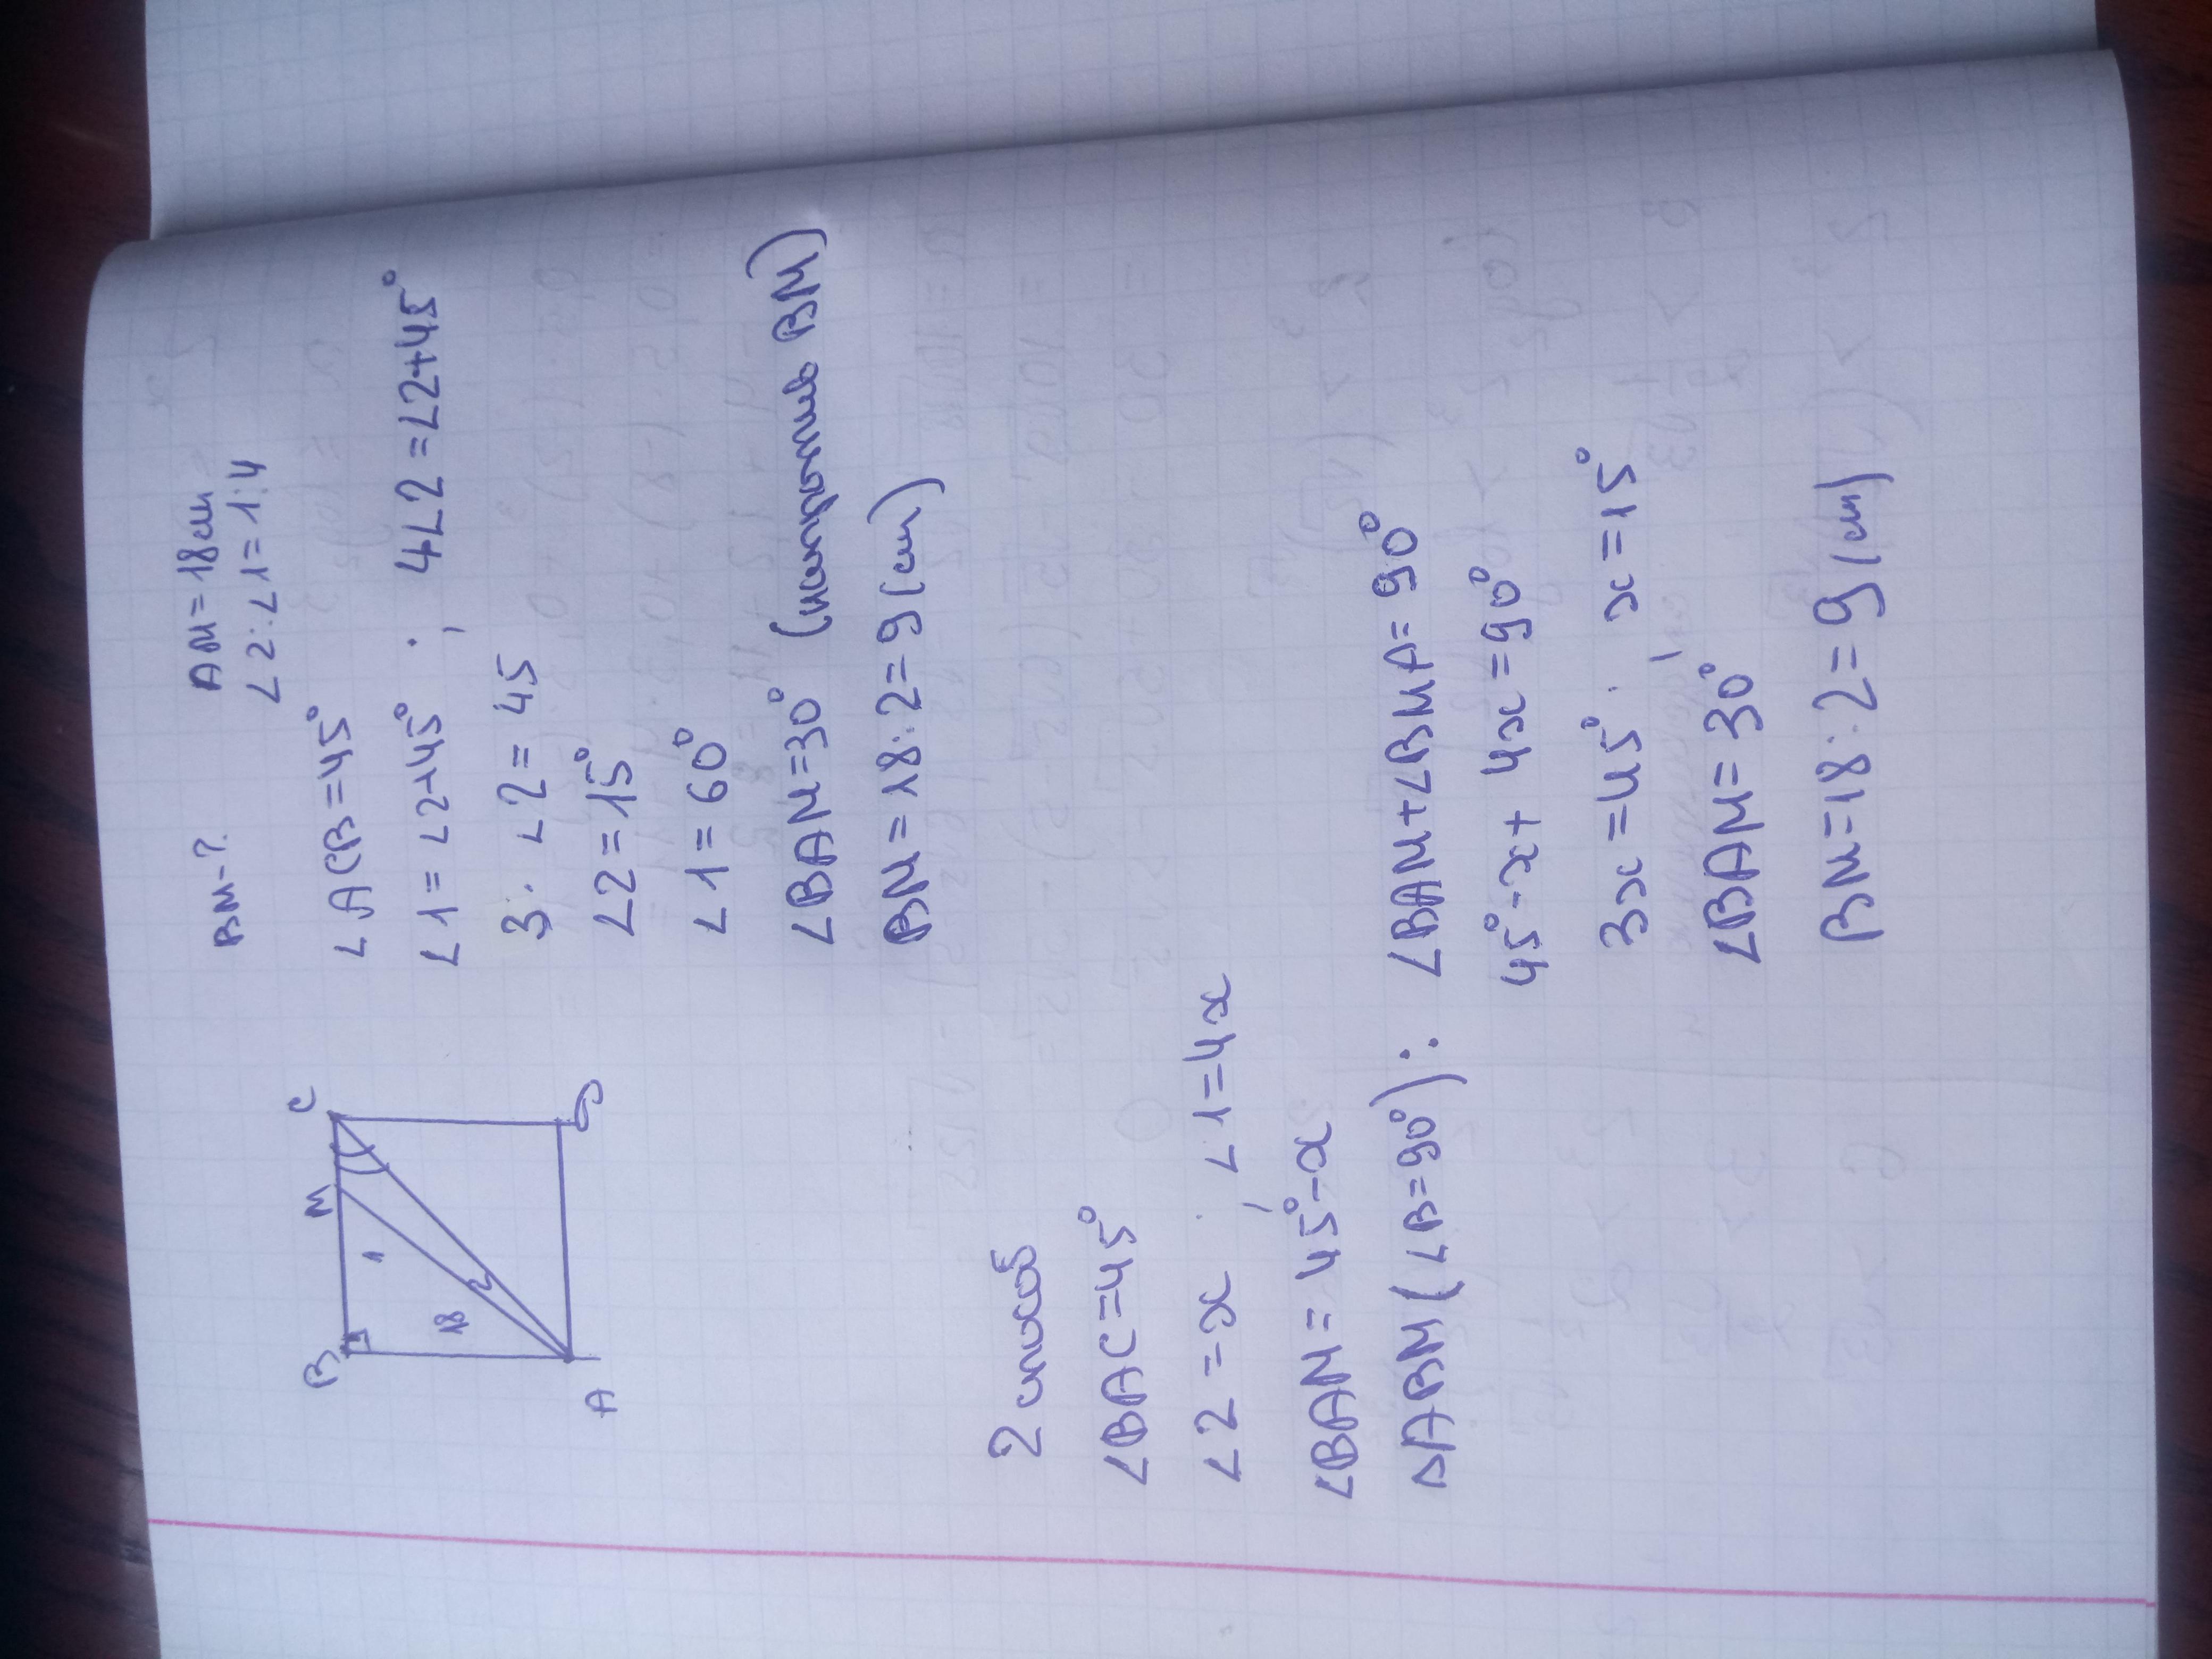 BM-? AM=18см
∠2:∠1=1:4
B M C
1
18
2
A D
∠ACB=45°
∠1=∠2+45° ; 4∠2=∠2+45°
3·∠2=45
∠2=15°
∠1=60°
∠BAM=30° (напротив BM)
BM=18:2=9(см)
2 способ
∠BAC=45°
∠2=x, ∠1=4x
∠BAM=45°-x
△ABM(∠B=90°): ∠BAM+∠BMA=90°
45°-x+4x=90°
3x=45°, x=15°
∠BAM=30°
BM=18:2=9(см)